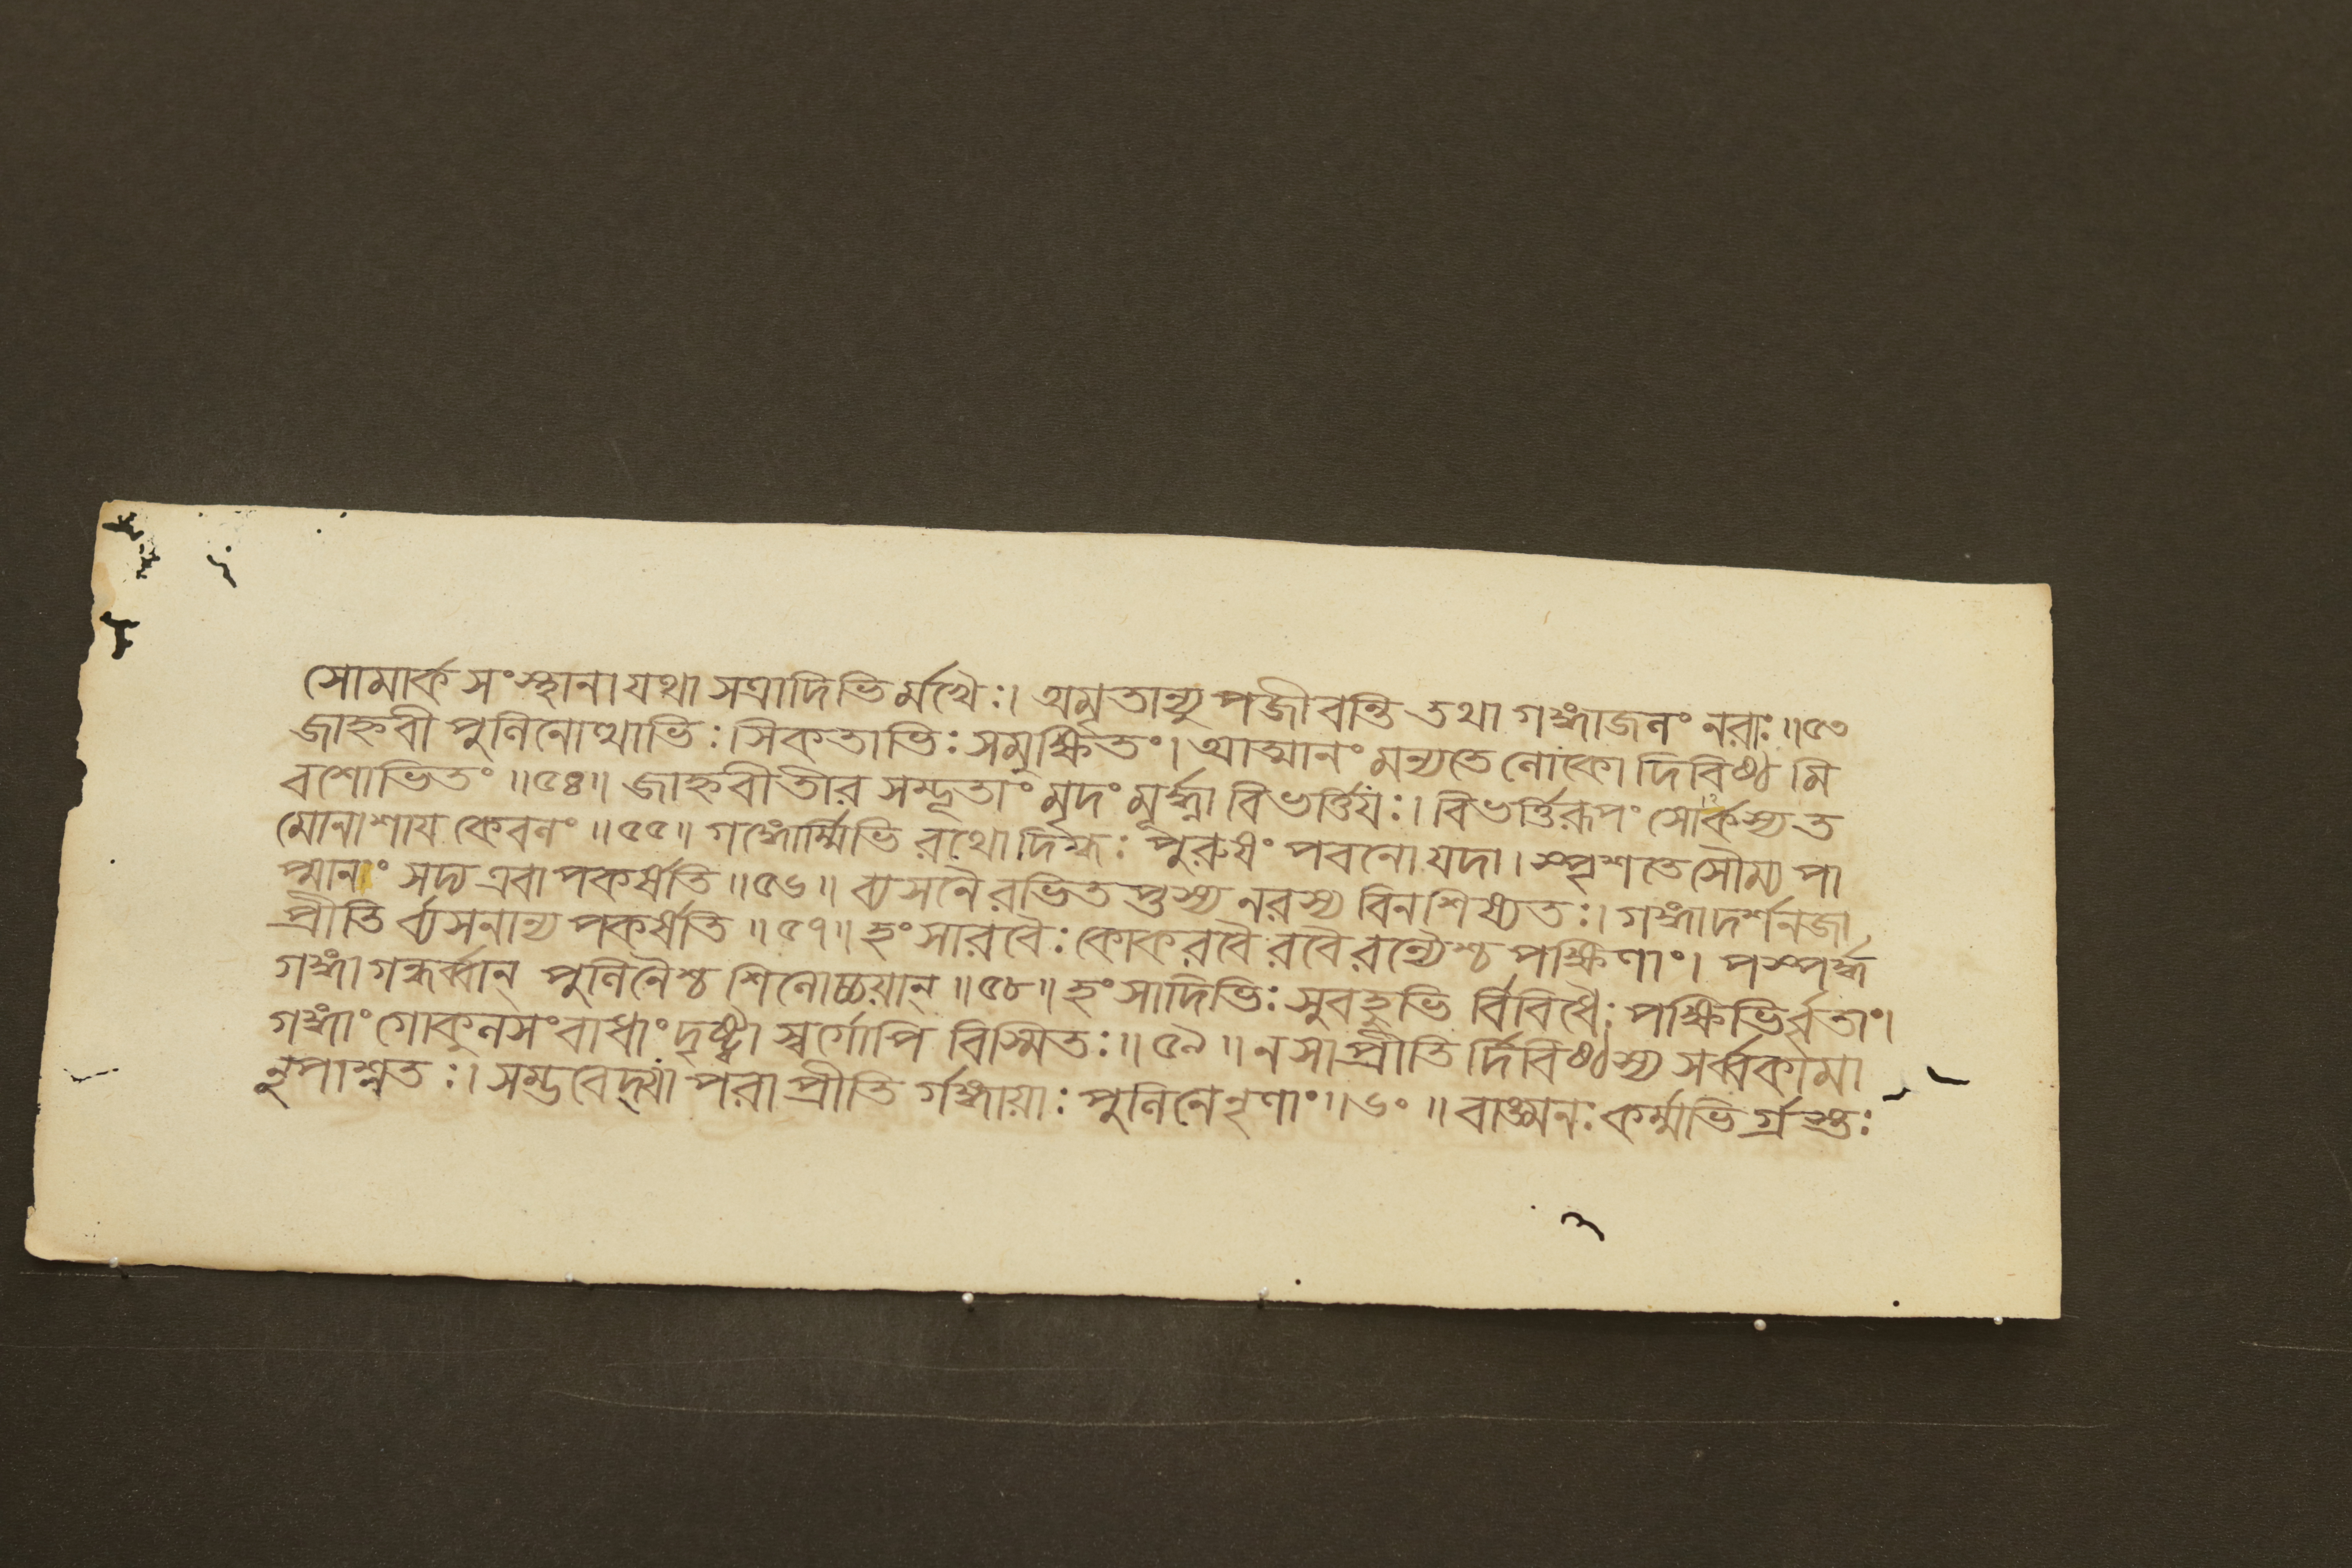 সোমার্ক সংস্থানা যথা সত্রাদিভি র্মখৈঃ। অমৃতান্যু পজীবন্তি তথা গঙ্গাজলং নরাঃ ॥৫৩
জাহ্নবী পুলিনোত্থাভিঃ। সিকতাভিঃ সমুক্ষিতং। আত্মানং মন্যতে লোকো দিবিষ্ঠ মি
বশোভিতং ॥৫৪॥ জাহ্নবীতীর সম্ভূতাং মৃদং মূর্দ্ধ্না বিভর্ত্তি যঃ। বিভর্ত্তি রূপং সোর্কস্য ত
মোনাশায কেবলং ॥৫৫॥ গঙ্গোর্ম্মিভি রথো দিগ্ধঃ পুরুষং পবনো যদা। স্পৃশতে সৌম্য পা
প্মানাং সদ্য এবা পকর্ষতি ॥৫৬॥ ব্যসনৈ রভিত প্তস্য নরস্য বিনশিষ্যতঃ। গঙ্গাদর্শনজা
প্রীতি র্ব্যসনান্য পকর্ষতি ॥৫৭॥ হংসারবৈঃ কোকরবৈ রবৈ রন্যৈশ্চ পক্ষিণাং। পস্পর্দ্ধ
গঙ্গা গন্ধর্ব্বান্ পুলিনৈশ্চ শিলোচ্চয়ান্ ॥৫৮॥ হংসাদিভিঃ সুবহুভি র্বিবিধৈঃ পক্ষিভির্বৃতাং।
গঙ্গাং গোকুলসংবাধাং দৃষ্ট্বা স্বর্গোপি বিস্মিতঃ ॥ ৫৯ ॥ ন সা প্রীতি র্দিবিষ্ঠস্য সর্ব্বকামা
নুপাশ্নতঃ। সম্ভবেদ্যা পরা প্রীতি র্গঙ্গায়াঃ পুলিনে নৃণাং ॥৬০ ॥ বাঙ্মনঃ কর্ম্মভি র্গ্রস্তঃ